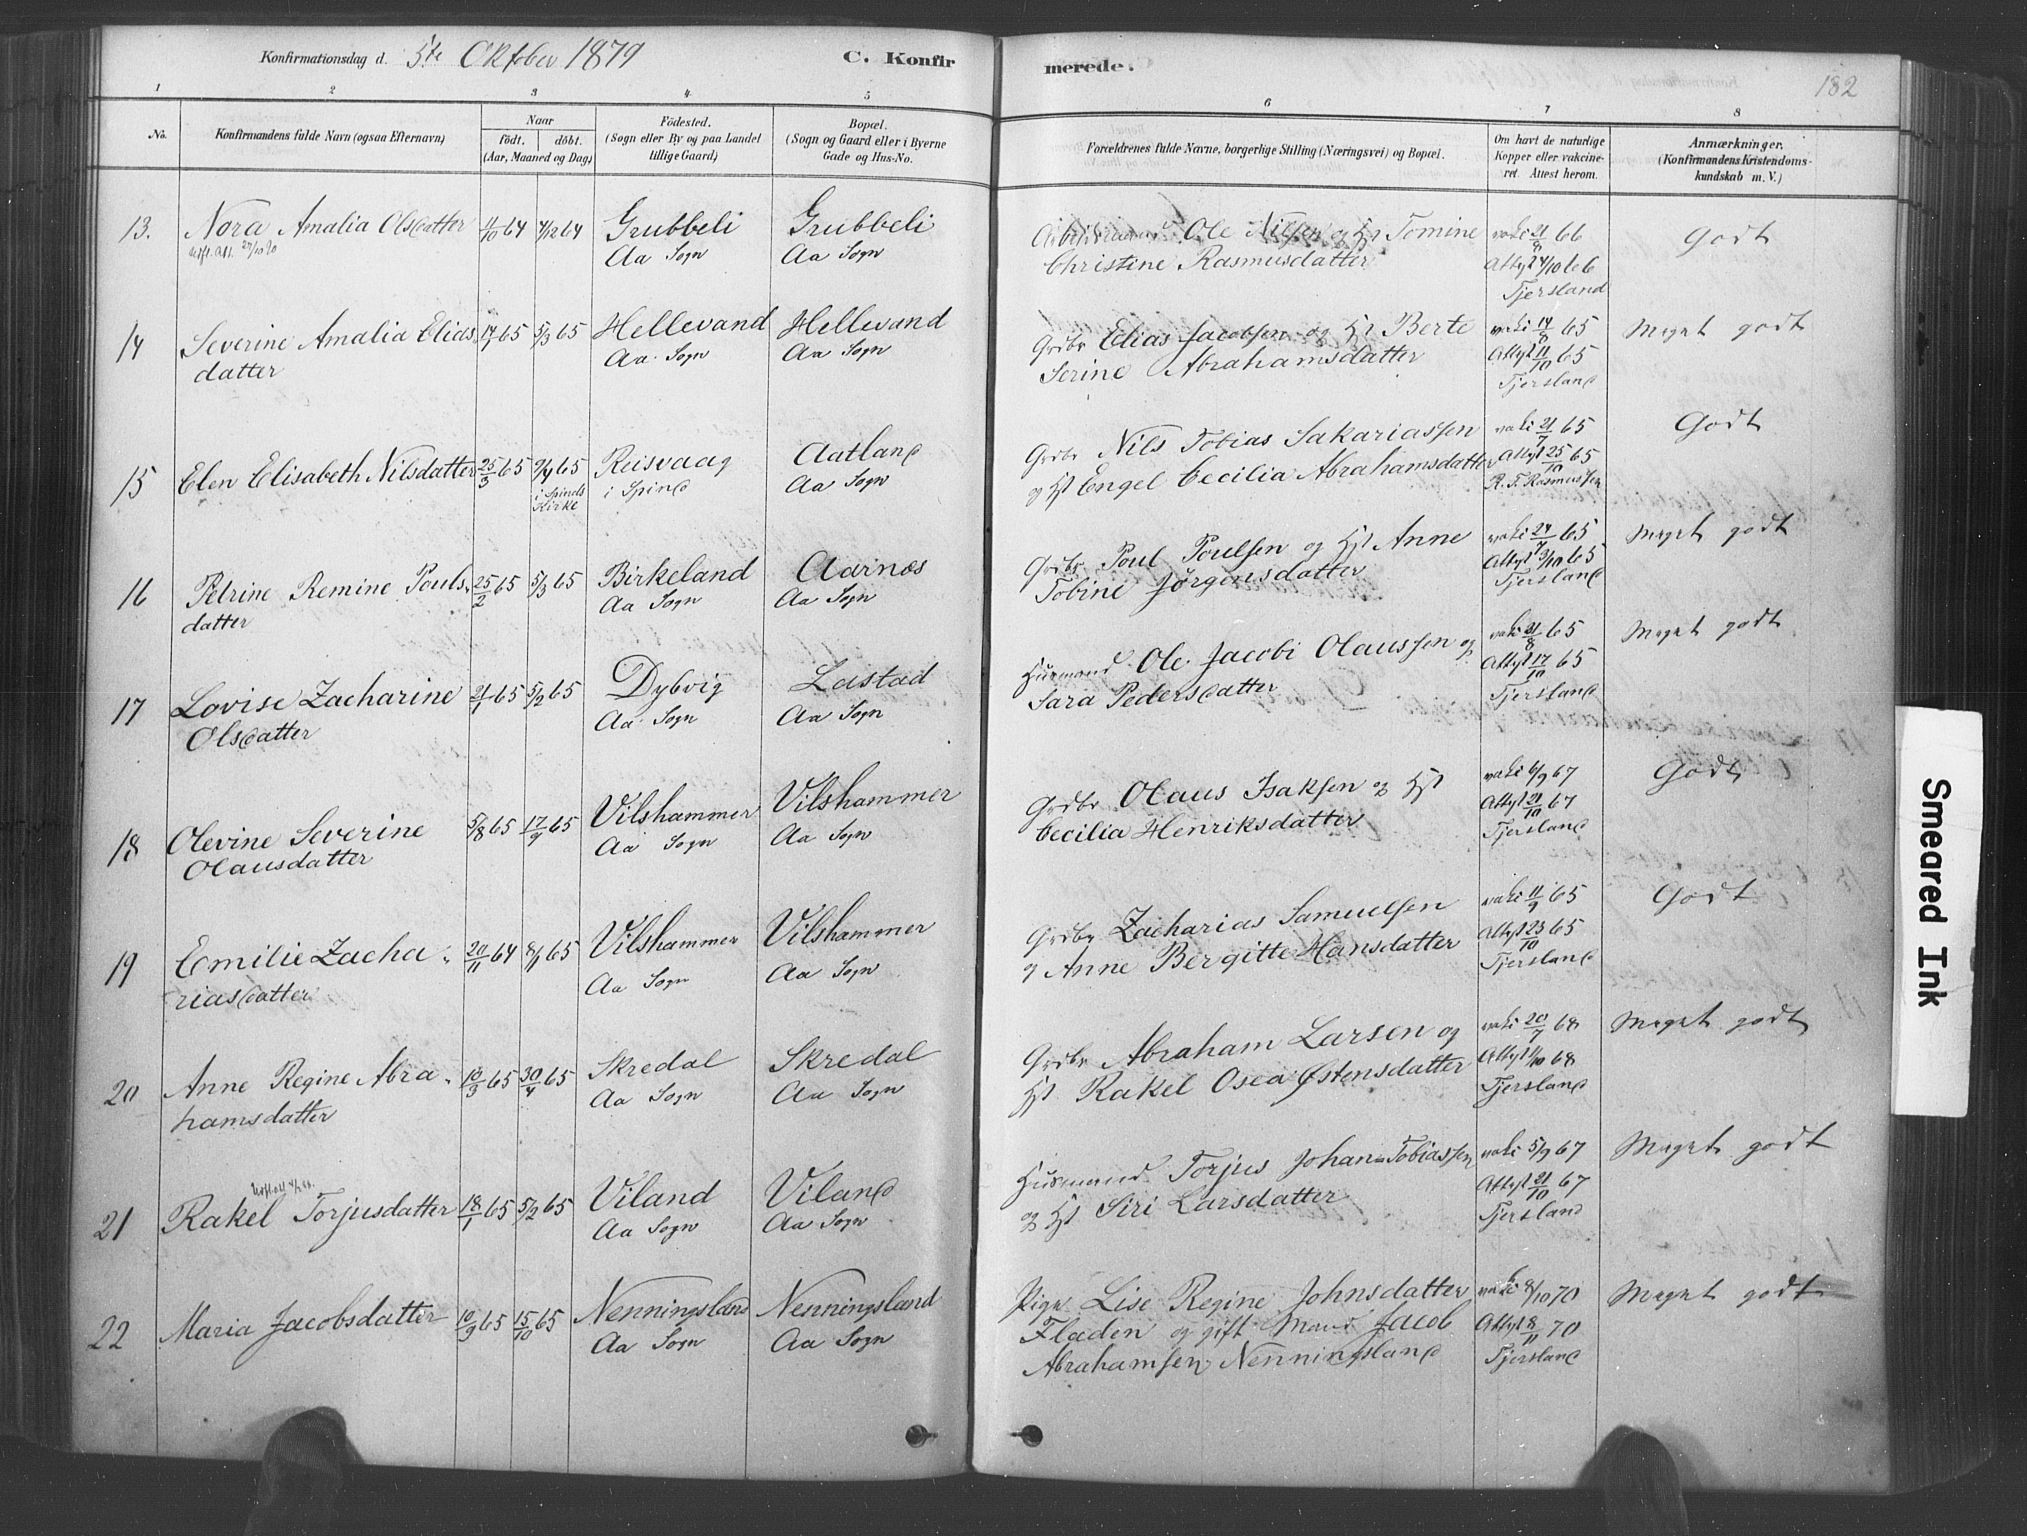 Konfirmationsdag d. 5te Oktober 1879
C. Konfir
merede.
182
1 2 3 4 5 6 7 8
No.
Konfirmandens fulde Navn (ogsaa Efternavn)
Naar
födt. döbt.
(Aar, Maaned og Dag)
Födested.
(Sogn eller By og paa Landet
tillige Gaard)
Bopæl.
(Sogn og Gaard eller i Byerne
Gade og Hus-No.
Forældrenes fulde Navne, borgerlige Stilling (Næringsvei) og Bopæl.
Om havt de naturlige
Kopper eller vakcine-
ret. Attest herom.
Anmærkninger.
(Konfirmandens Kristendoms-
kundskab m. V.)
13. Nora Amalia Olsdatter 11/10 64 4/12 64 Grubbeli Grubbeli Arbeidsmand Ole Nilsen og Hst Tomine vaki 21/8 66 Godt
27/10 90 Aa Sogn Aa Sogn Christine Rasmusdatter Attst 24/10 66
Tjersland
14 Severine Amalia Elias 17/1 65 5/3 65 Hellevand Hellevand Grdbr Elias Jacobsen og Hst Berte vaki 14/8 65 Meget godt
datter Aa Sogn Aa Sogn Serine Abrahamsdatter Attst 11/10 65
Tjersland
15 Elen Elisabeth Nilsdatter 25/3 65 9/4 65 Reisvaag Aatland Grdbr Nils Tobias Sakariassen vaki 21/7 65 Godt
i Spinds Kirke i Spind Aa Sogn og Hst Engel Cecilia Abrahamsdatter Attst 25/10 65
R. F. Rasmussen
16 Petrine Remine Pouls 25/2 65 5/3 65 Birkeland Aarnæs Grdbr Poul Poulsen og Hst Anne vaki 24/7 65 Meget godt
datter Aa Sogn Aa Sogn Tobine Jørgensdatter Attst 3/10 65
Tjersland
17 Lovise Zacharine 21/1 65 5/2 65 Dybvig Lastad Husmand Ole Jacobi Olaussen og vaki 21/8 65 Meget godt
Olsdatter Aa Sogn Aa Sogn Sara Pedersdatter Attst 17/10 65
Tjersland
18 Olevine Severine 5/8 65 17/9 65 Vilshammer Vilshammer Grdbr Olaus Isaksen og Hst vaki 6/9 67 Godt
Olausdatter Aa Sogn Aa Sogn Cecilia Henriksdatter Attst 21/10 67
Tjersland
19 Emilie Zacha 20/11 64 8/1 65 Vilshammer Vilshammer Grdbr Zacharias Samuelsen vaki 11/9 65 Godt
riasdatter Aa Sogn Aa Sogn og Anne Bergitte Hansdatter Attst 23/10 65
Tjersland
20 Anne Regine Abra 10/3 65 30/4 65 Skredal Skredal Grdbr Abraham Larsen og vaki 20/7 68 Meget godt
hamsdatter Aa Sogn Aa Sogn Hst Rakel Osea Østensdatter Attst 1/10 68
Tjersland
21 Rakel Torjusdatter 18/1 65 5/2 65 Viland Viland Husmand Torjus Johan Tobiassen vaki 5/9 67 Meget godt
Aa Sogn Aa Sogn og Hst Siri Larsdatter Attst 21/10 67
Tjersland
22 Maria Jacobsdatter 10/9 65 15/10 65 Nenningsland Nenningsland Pige Lise Regine Johnsdatter vaki 8/10 70 Meget godt
Aa Sogn Aa Sogn Fladen og gift Mand Jacob Attst 8/11 70
Abrahamsen Nenningsland Tjersland
Smeared Ink